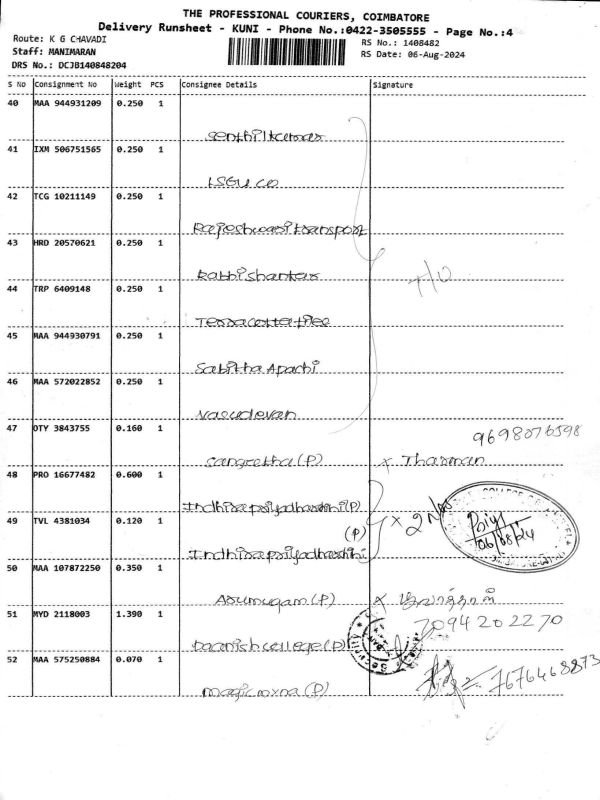 THE PROFESSIONAL COURIERS, COIMBATORE
Delivery Runsheet - KUNI - Phone No.:0422-3505555 - Page No.:4
Route: K G CHAVADI
RS No.: 1408482
Staff: MANIMARAN
RS Date: 06-Aug-2024
DRS No.: DCJB140848204
S No Consignment No Weight PCS Consignee Details Signature
40 MAA 944931209 0.250 1
Senthilkumar
41 IXM 506751565 0.250 1
LSGU CO
42 TCG 10211149 0.250 1
Rajeshwari transport
43 HRD 20570621 0.250 1
Rabbishankar
T/O
44 TRP 6409148 0.250 1
Terracotta
45 MAA 944930791 0.250 1
Sabitha Apachi
46 MAA 572022852 0.250 1
Vasudevan
47 OTY 3843755 0.160 1
9698076598
Sangeetha (P) x Tharman
48 PRO 16677482 0.600 1
Indhirapriyadharshini (P)
x 2 Nos
06/08/24
49 TVL 4381034 0.120 1
(P)
Indhirapriyadharshini
50 MAA 107872250 0.350 1
Arumugam (P) x
7094202270
51 MYD 2118003 1.390 1
Daanish college (P)
52 MAA 575250884 0.070 1
7676468873
(P)